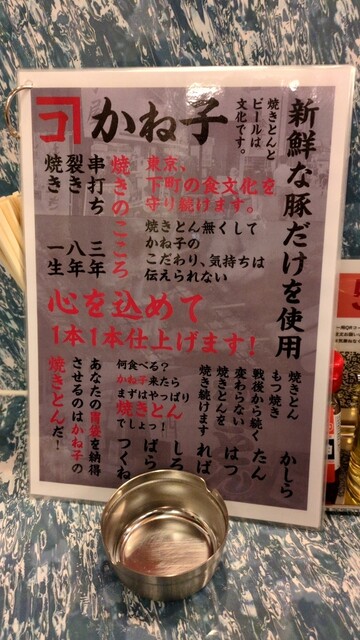 新鮮な豚だけを使用
焼きとんと
ビールは
文化です。
コ
かね子
東京、
下町の食文化を
守り続けます。
焼きとん無くして
かね子の
こだわり、気持ちは
伝えられない
焼きのこころ
串打ち 三年
裂き 八年
焼き 一生
心を込めて
1本1本仕上げます!
焼きとん
もつ焼き
戦後から続く
変わらない
焼きとんを
焼き続けます
かしら
たん
はつ
れば
しろ
ばら
つくね
何食べる?
かね子来たら
まずはやっぱり
焼きとん
でしょっ!
あなたの胃袋を納得
させるのはかね子の
焼きとんだ!